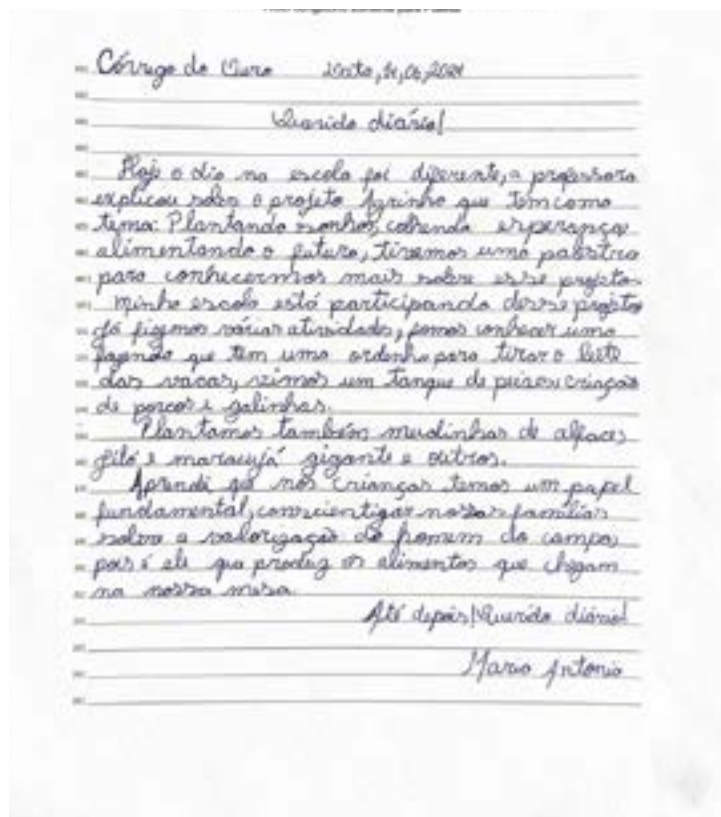 Córrego do Ouro
Querido diário!
Hoje o dia na escola foi diferente, a professora
explicou sobre o projeto Agrinho que tem como
tema: Plantando sonhos, colhendo esperança
alimentando o futuro, tivemos uma palestra
para conhecermos mais sobre esse projeto.
Minha escola está participando desse projeto
já fizemos várias atividades, fomos conhecer uma
fazenda que tem uma ordenha para tirar o leite
das vacas, vimos um tanque de peixes, criação
de porcos e galinhas.
Plantamos também mudinhas de alfaces,
e maracujá gigante e outros.
Aprendi que nós crianças temos um papel
fundamental, conscientizar nossas famílias
sobre a valorização do homem do campo,
pois é ele que produz os alimentos que chegam
na nossa mesa.
Até depois! Querido diário!
Mario Antonio